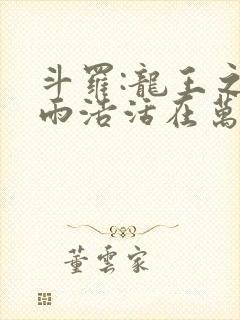 斗羅:龍王之
雨浩活在萬
董雲家